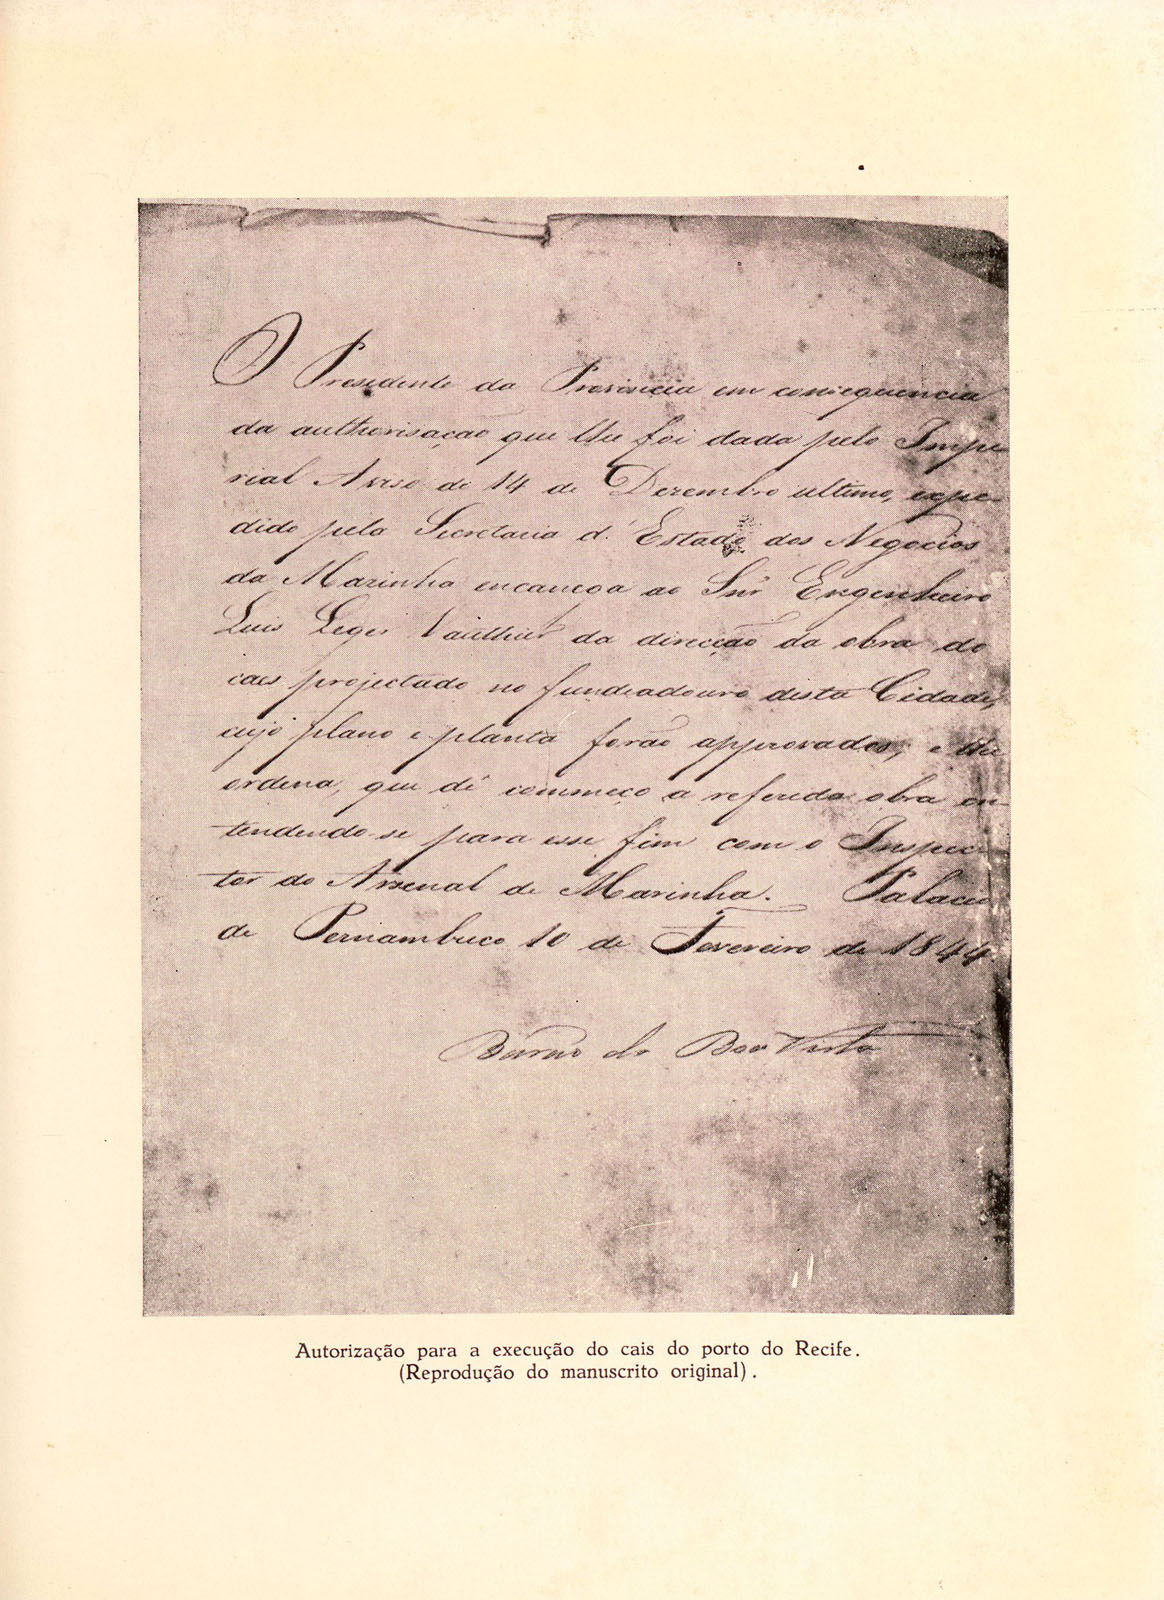 O Presidente da Provincia em consequencia
da authorisação que lhe foi dada pelo Impe-
rial Aviso de 14 de Dezembro ultimo, expe-
dido pela Secretaria d'Estado dos Negocios
da Marinha encarrega ao Snr Engenheiro
Luis Leger Vauthier da direcção da obra do
caes projectado no fundeadouro desta Cidade,
cujo plano e planta forão approvados, e lhe
ordena, que dê começo a referida obra en-
tendendo-se para esse fim com o Inspec-
tor do Arsenal de Marinha. Palacio
de Pernambuco 10 de Fevereiro de 1844
Barão da Boa Vista
Autorização para a execução do cais do porto do Recife.
(Reprodução do manuscrito original).